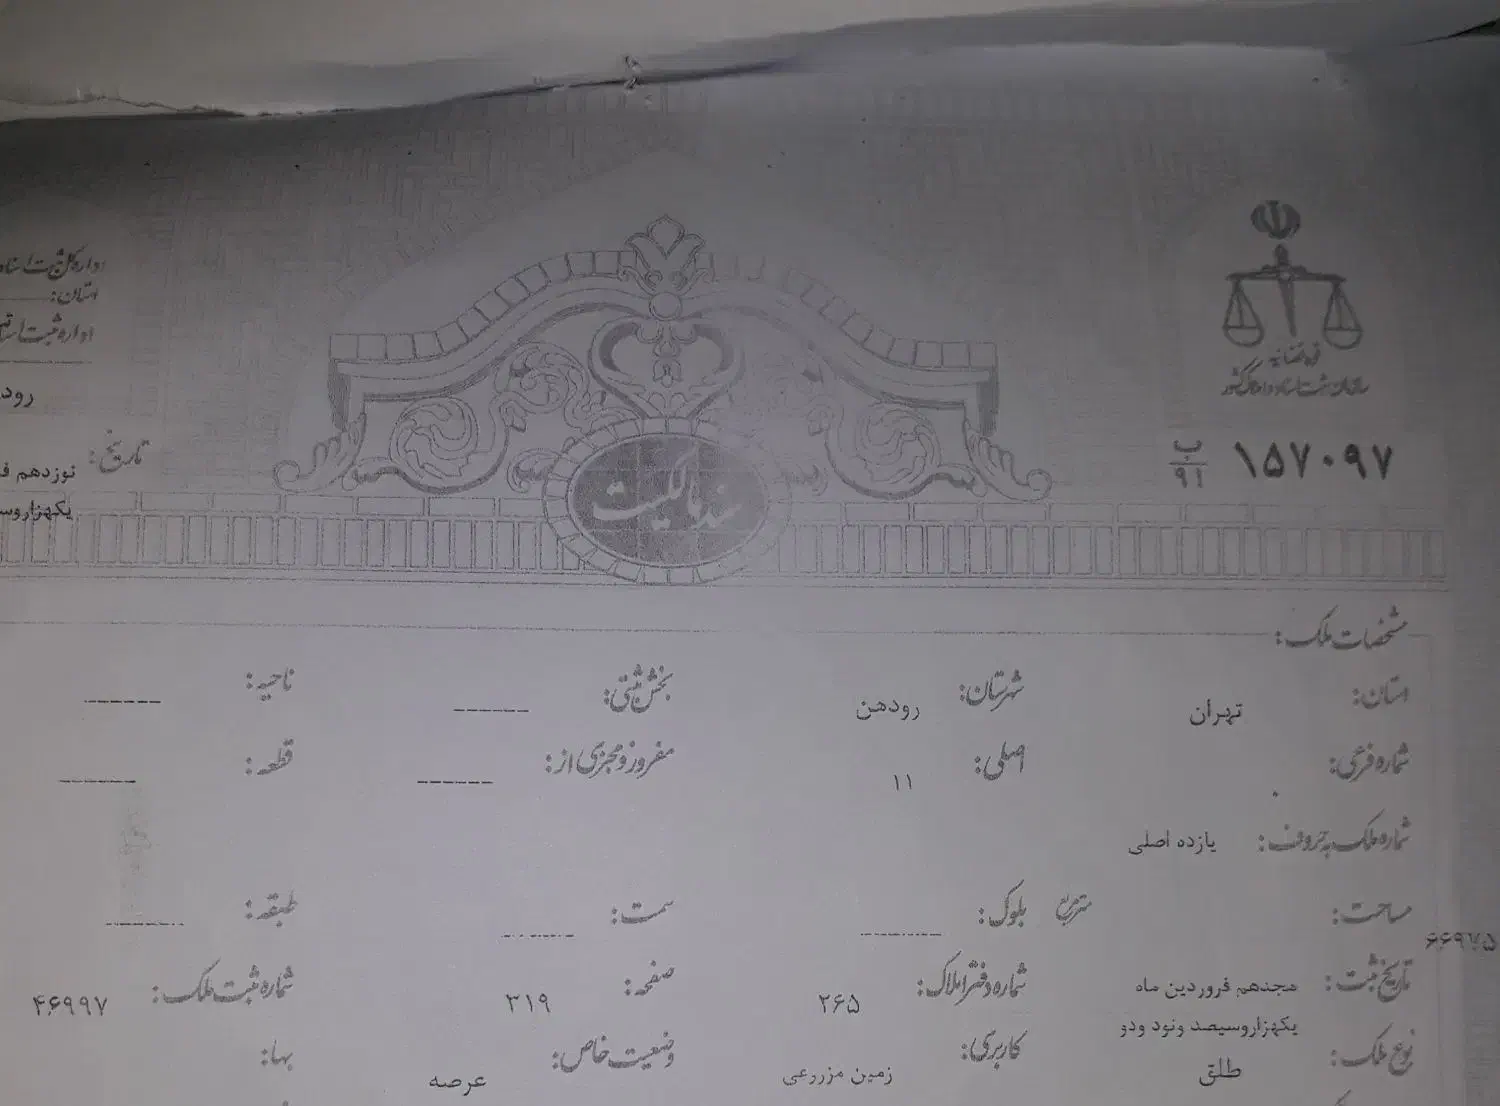 قوه قضائیه
سازمان ثبت اسناد و املاک کشور
۱۵۷۰۹۷ ب ۹۱
اداره کل ثبت اسناد
استان:
اداره ثبت اسناد
رود
تاریخ: نوزدهم
یکهزاروسی
سند مالکیت
مشخصات ملک:
استان: تهران شهرستان: رودهن بخش ثبتی: ------ ناحیه: ------
شماره فرعی: ۰ اصلی: ۱۱ مفروز و مجزی از: ------ قطعه: ------
شماره ملک به حروف: یازده اصلی
مساحت: مترمربع بلوک: ------ سمت: ------ طبقه: ------
تاریخ ثبت: هجدهم فروردین ماه یکهزاروسیصد ونود ودو شماره دفتر املاک: ۲۶۵ صفحه: ۳۱۹ شماره ثبت ملک: ۴۶۹۹۷
نوع ملک: طلق کاربری: زمین مزروعی وضعیت خاص: عرصه بها: